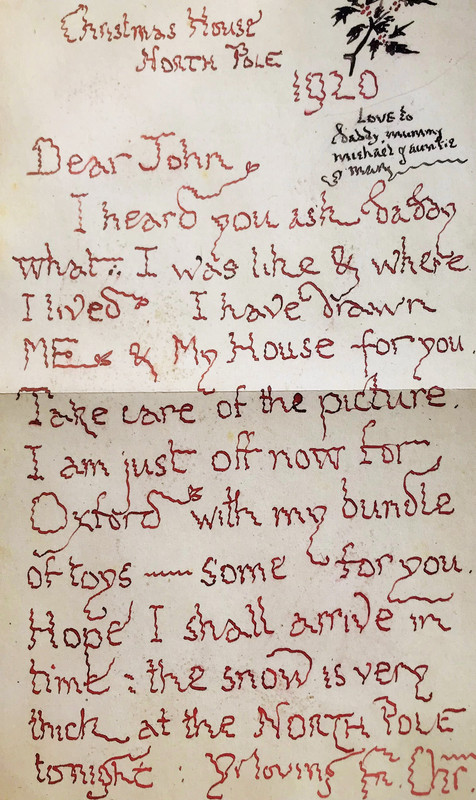 Christmas House
NORTH POLE
1920
Love to
daddy, mummy
michael & auntie
& mary
Dear John
I heard you ask daddy
what I was like & where
I lived. I have drawn
ME & My House for you.
Take care of the picture.
I am just off now for
Oxford with my bundle
of toys — some for you.
Hope I shall arrive in
time : the snow is very
thick at the NORTH POLE
tonight : Yr loving Fr. Chr